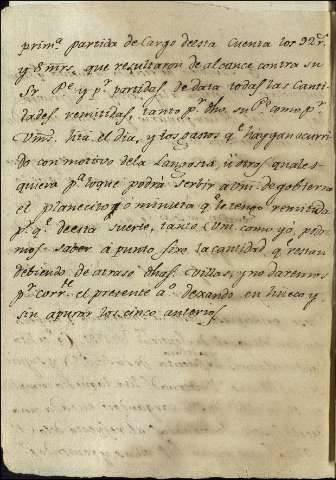 prim.ª partida de Cargo de esta Cuenta los 92 r.s
y 8 mrs. que resultaron de alcance contra su
Sr. P.e y p.r partidas de data todas las Canti
dades remitidas, tanto p.r dho. su P.e como p.r
Vm. hta el dia, y los gastos q.e haygan ocurri
do con motivo de la Langosta ù otros quales
quiera p.ª lo que podrá serbir a Vm. de gobierno
el planecito o minuta q.e le tengo remitida
p.r q.e de esta suerte, tanto Vm. como yo, podre
mos saber a punto fixo la cantidad q.e restan
debiendo de atraso dhas. Villas, y no daremos
p.r corr.te el presente a.o dexando en hueco y
sin apurar los cinco anteriores.